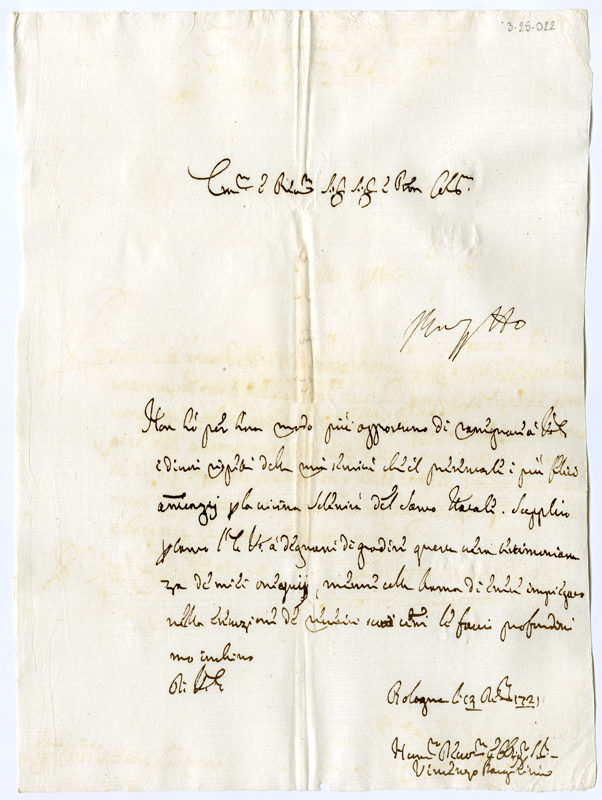 3-25-022
Em.mo e Rev.mo Sig. Sig. e Pron Col.mo
Non hò per hora modo più opportuno di rassegnare à V.E.
i divoti rispetti della mia servitù che il presentarle i più felici
annunzij p la vicina Solennità del Santo Natale. Supplico
p tanto l'E.V. à degnarsi di gradire questa vera testimonian
za de miei ossequij, mentre colla brama di essere impiegato
nella essecuzione de suoi cenni le faccio profondissi
mo inchino
Di V.E.
Bologna li 13 Xbre 1721
Hum.mo Devot.mo Obblig.mo
Vincenzo